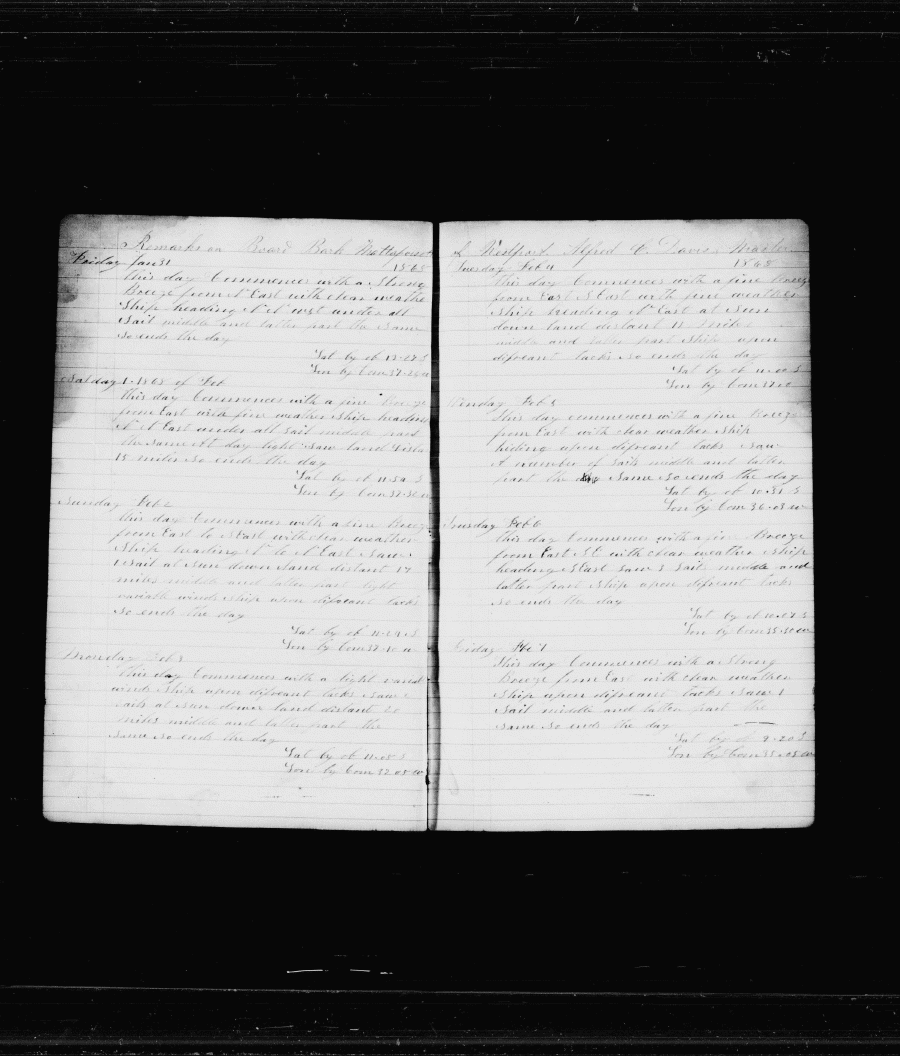 Remarks on Board Bark Mattapoisett
Friday Jan 31 1868
this day Commences with a Strong
Breeze from N East with clear weathe
Ship heading N N West under all
Sail middle and latter part the Same
So ends the day
Lat by ob 13-27 S
Lon by Crom 37-24 w
Satday 1-1868 of Feb
this day Commences with a fine Breeze
from East with fine weather Ship heading
N N East under all Sail middle part
the Same At day light Saw land Dista
15 miles So ends the day
Lat by ob 11-50 S
Lon by Crom 37-30 w
Sunday Feb 2
this day Commences with a fine Breeze
from East to N East with clear weather
Ship heading N to N East Saw
1 Sail at Sun down land distant 17
miles middle and latter part light
variable winds Ship upon difreant tacks
So ends the day
Lat by ob 11-09 S
Lon by Crom 37-10 w
Monday Feb 3
this day Commences with a light
winds Ship upon difreant tacks Saw 2
Sails at Sun down land distant 20
miles middle and latter part the
Same So ends the day
Lat by ob 11-05 S
Lon by Crom 37 05 w
of Westport Alfred C Davis Master
Tuesday Feb 4 1868
this day Commences with a fine Breeze
from East N East with fine weather
Ship heading N East at Sun
down land distant 18 miles
middle and latter part Ship upon
difreant tacks So ends the day
Lat by ob 11-00 S
Lon by Crom 37-0
Feb 5
this day commences with a fine Breeze
from East with clear weather Ship
heding upon difreant tacks Saw
A number of Sails middle and latter
part the Same So ends the day
Lat by ob 10-31 S
Lon by Crom 36-03 w
Feb 6
this day Commences with a fine Breeze
from East S E with clear weather Ship
heading N East Saw 3 Sails middle and
latter part Ship upon difreant tacks
So ends the day
Lat by ob 10-07 S
Lon by Crom 35-30 w
Friday Feb 7
this day Commences with a Strong
Breeze from East with clear weather
Ship upon difreand tacks Saw 1
Sail middle and latter part the
Same So ends the day
Lat by ob 9-20 S
Lon by Crom 35-05 w